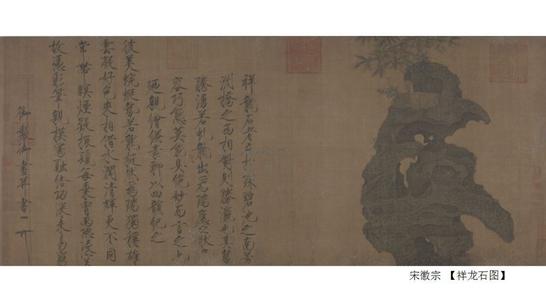 祥龍石者立於環碧池之南芳
洲橋之西相對則勝瀛也其勢
騰湧若虯龍出為瑞應之狀奇
容巧態莫能具絕妙而言之也
廼親繪縑素聊以四韻紀之
彼美蜿蜒勢若龍挺然為瑞獨稱雄
雲凝好色來相借水潤清輝更不同
常帶暝煙疑振鬣每乘宵雨恐凌空
故憑彩筆親模寫融結功深未易窮
御製御畫并書
宋徽宗 【祥龙石图】